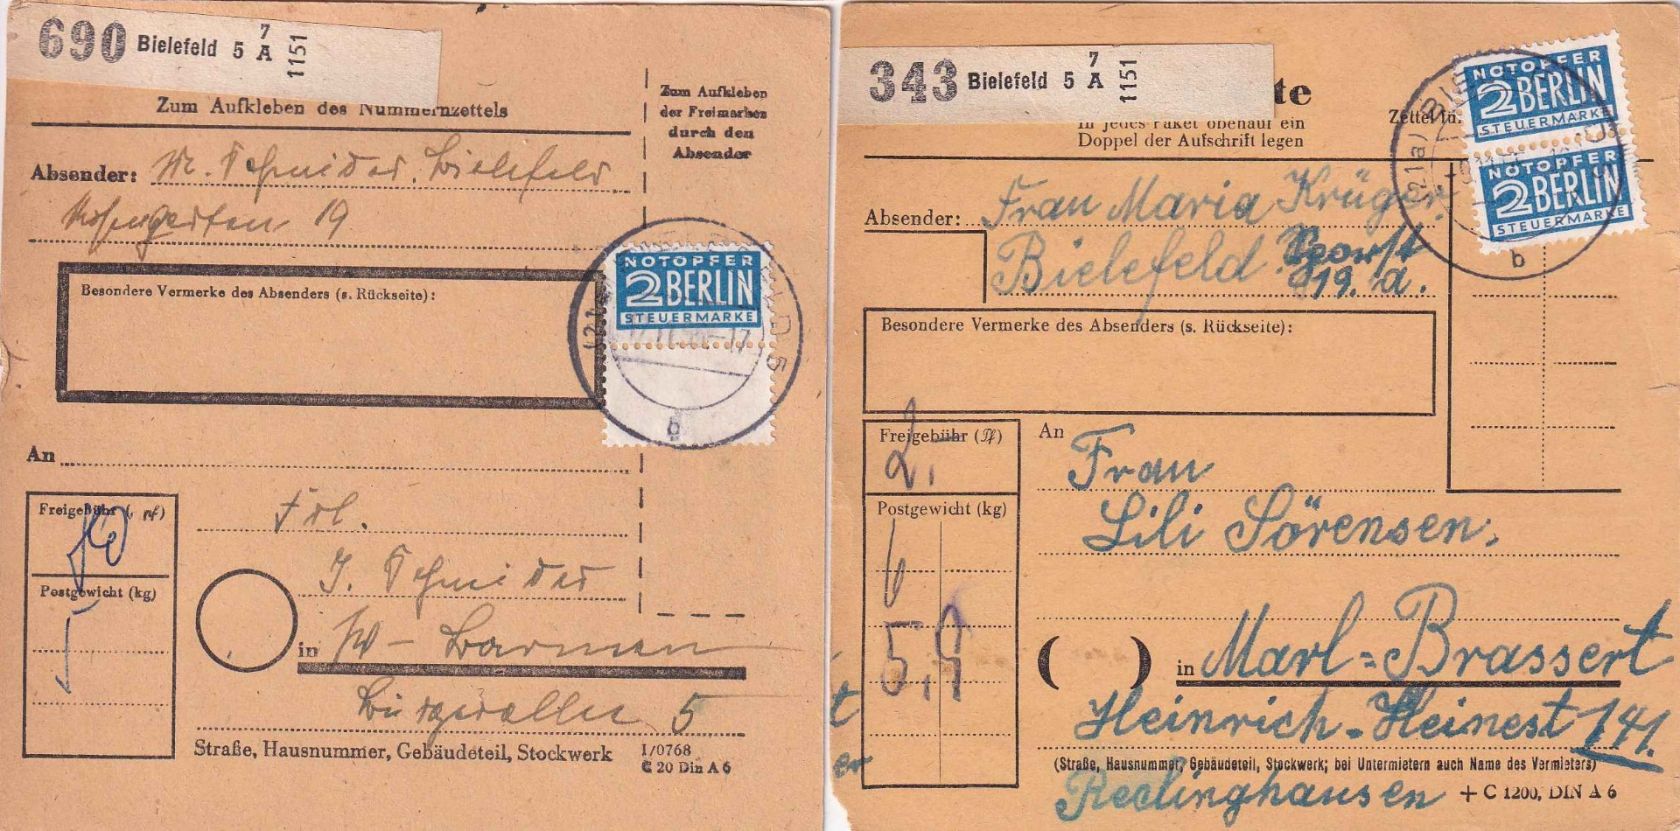 690 Bielefeld 5 7 A 1151
Zum Aufkleben des Nummernzettels
Zum Aufkleben
der Freimarken
durch den
Absender
Absender: W. Schnider, Bielefeld
19
Besondere Vermerke des Absenders (s. Rückseite):
NOTOPFER
2 BERLIN
STEUERMARKE
b
An
Freigebühr
Postgewicht (kg)
Frl.
J. Schnider
in W-Barmen
Bürgerallee 5
Straße, Hausnummer, Gebäudeteil, Stockwerk
I/0768
C 20 Din A 6
343 Bielefeld 5 7 A 1151
te
In jedes Paket obenauf ein
Doppel der Aufschrift legen
NOTOPFER
2 BERLIN
STEUERMARKE
NOTOPFER
2 BERLIN
STEUERMARKE
(21a) BIE
b
Absender: Frau Maria Krüger.
Bielefeld
19. a.
Besondere Vermerke des Absenders (s. Rückseite):
Freigebühr (Pf)
2,-
Postgewicht (kg)
6
An
Frau
Lili Sörensen.
in Marl-Brassert
Heinrich-Heinest 141.
(Straße, Hausnummer, Gebäudeteil, Stockwerk; bei Untermietern auch Name des Vermieters)
Reclinghausen
+ C 1200, DIN A 6